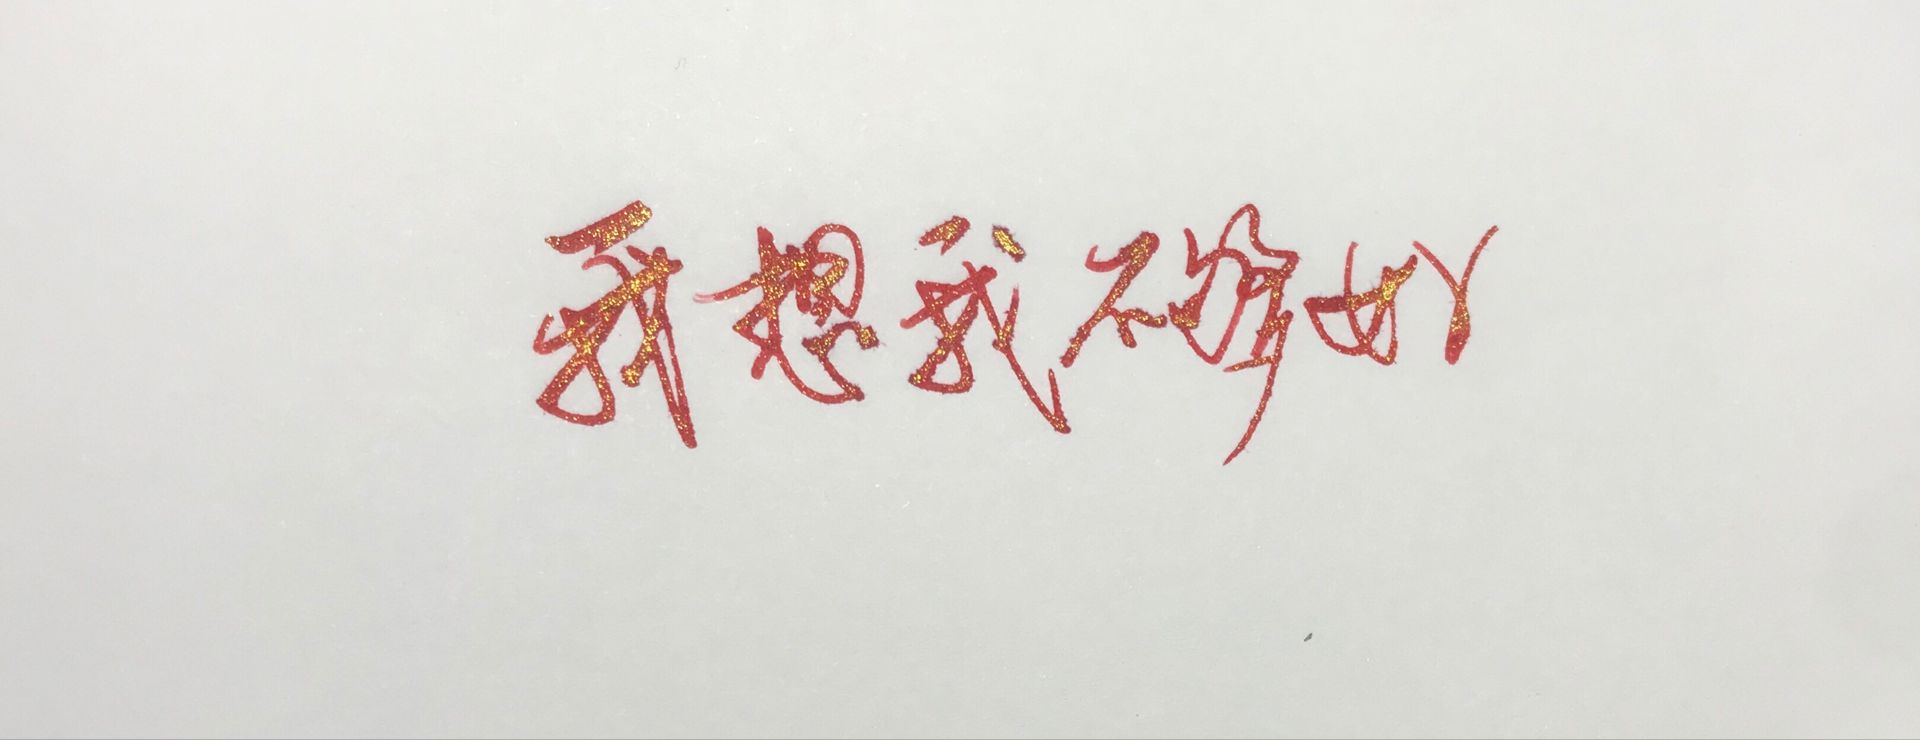 我想我不够好